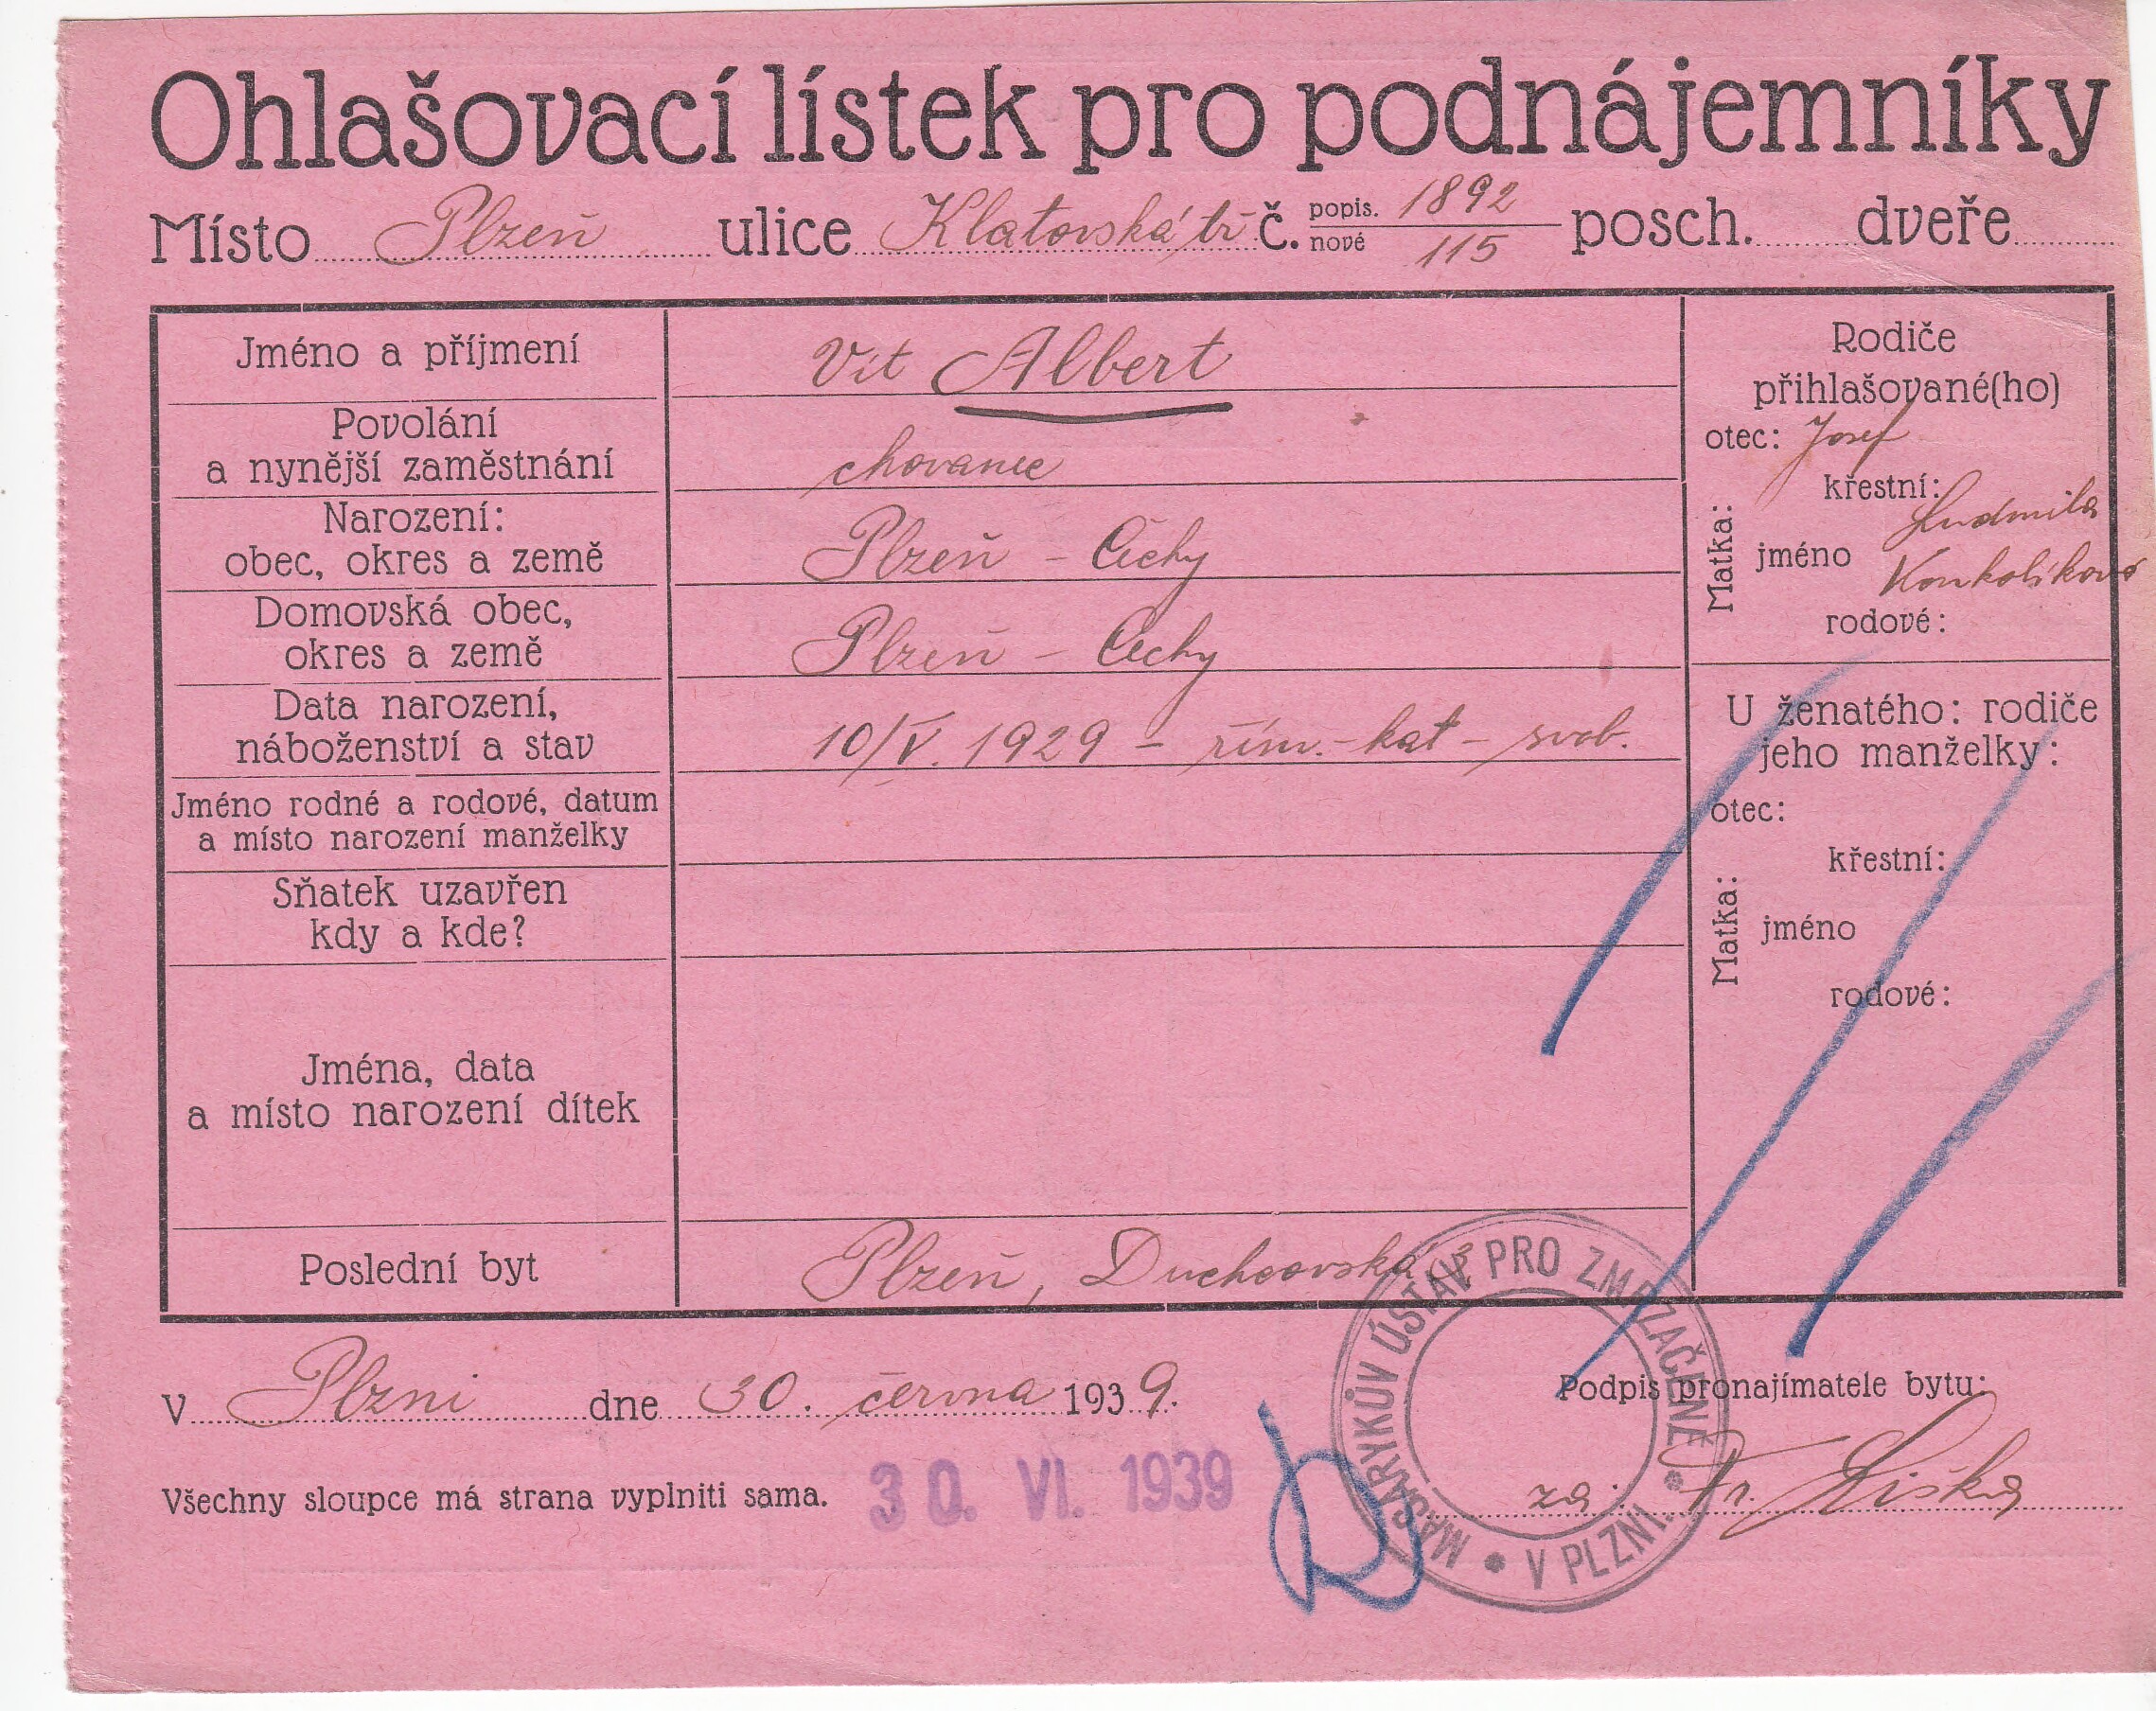 Ohlašovací lístek pro podnájemníky
Místo Plzeň ulice Klatovská tř č. popis. 1892 posch. dveře
nové 115
Jméno a příjmení Vít Albert
Povolání
a nynější zaměstnání chovanec
Narození:
obec, okres a země Plzeň – Čechy
Domovská obec,
okres a země Plzeň – Čechy
Data narození,
náboženství a stav 10/V. 1929 – řím.-kat – svob.
Jméno rodné a rodové, datum
a místo narození manželky
Sňatek uzavřen
kdy a kde?
Jména, data
a místo narození dítek
Poslední byt Plzeň, Duchcovská
Rodiče
přihlašované(ho)
otec: Josef
Matka:
křestní: Ludmila
jméno
Konkolíková
rodové:
U ženatého: rodiče
jeho manželky:
otec:
Matka:
křestní:
jméno
rodové:
V Plzni dne 30. června 1939.
Podpis pronajímatele bytu:
Všechny sloupce má strana vyplniti sama.
30. VI. 1939
za: Fr. Liška
MASARYKŮV ÚSTAV PRO ZMRZAČENÉ
V PLZNI.